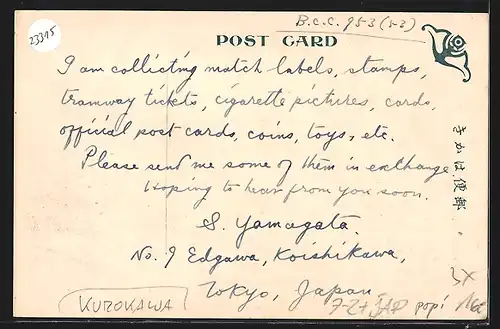 23315
B.C.C. 953 (53)
POST CARD
I am collecting match labels, stamps,
tramway tickets, cigarette pictures, cards,
official post cards, coins, toys, etc.
Please send me some of them in exchange
Hoping to hear from you soon.
S. Yamagata.
No. 9 Edgawa, Koishikawa,
Tokyo, Japan.
きかは便郵
KUROKAWA